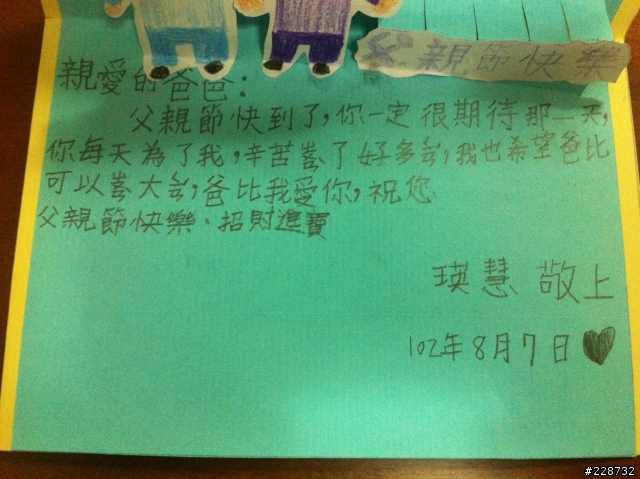 父親節快樂
親愛的爸爸:
父親節快到了,你一定很期待那一天,
你每天為了我,辛苦了好多,我也希望爸比
可以大,爸比我愛你,祝您
父親節快樂.招財進寶
瑛慧 敬上
102年8月7日
#228732